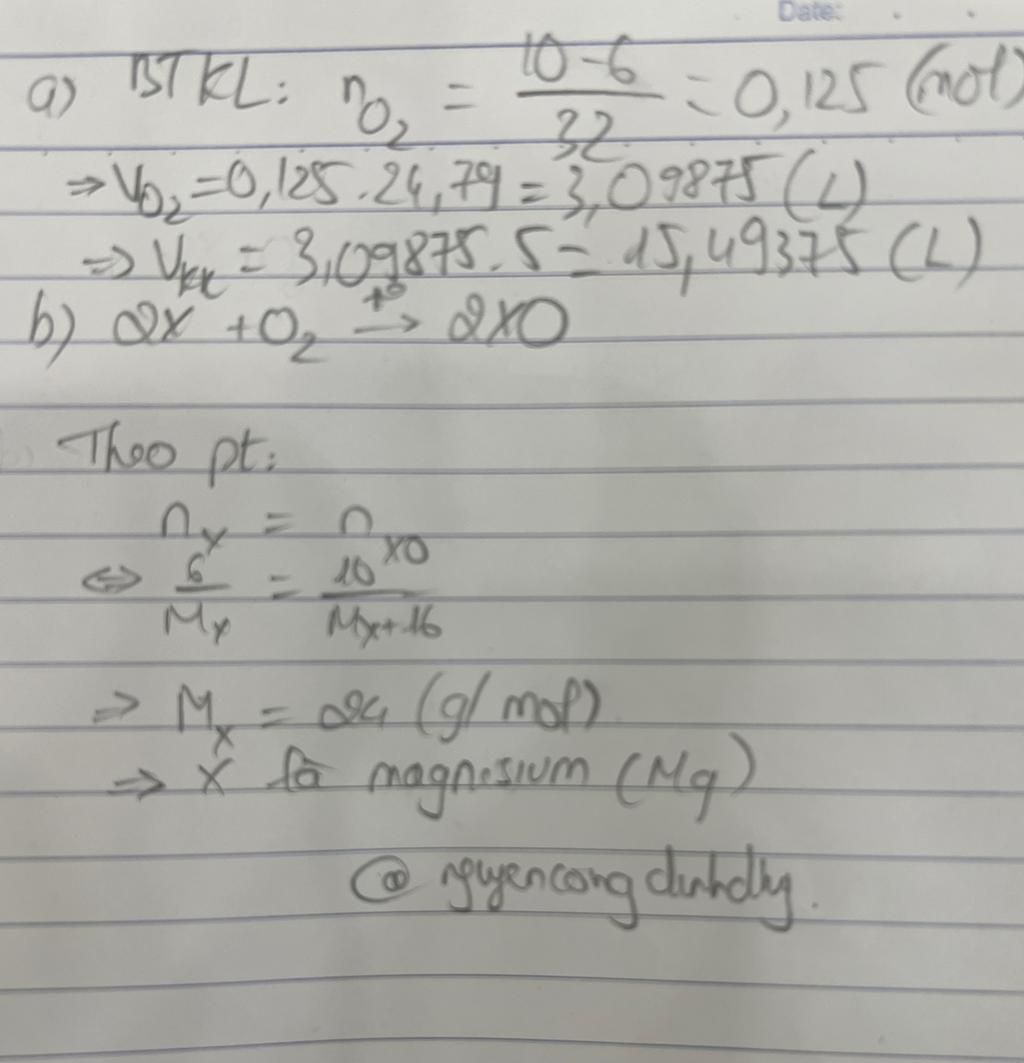 Date:
a) BTKL: nO₂ = (10-6)/32 = 0,125 (mol)
⇒ VO₂ = 0,125 . 24,79 = 3,09875 (L)
⇒ Vkk = 3,09875 . 5 = 15,49375 (L)
b) 2X + O₂ →(t°) 2XO
Theo pt:
nX = nXO
⇔ 6/MX = 10/(MX+16)
⇒ MX = 24 (g/mol)
⇒ X là magnesium (Mg)